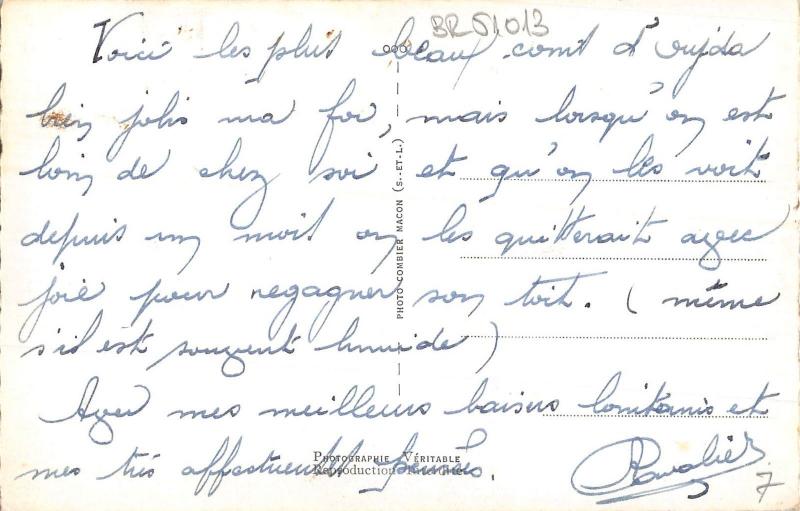 BR51013
Voici les plus beaux coint d'oujda
bien jolis ma foi, mais lorsqu'on est
loin de chez soi et qu'on les voit
depuis un mois on les quitterait avec
joie pour regagner son toit. (même
s'il est souvent humide)
Ayez mes meilleurs baisers lointains et
mes très affectueuses pensées.
PHOTO COMBIER MACON (S.-ET-L.)
PHOTOGRAPHIE VÉRITABLE
Reproduction Interdite
7